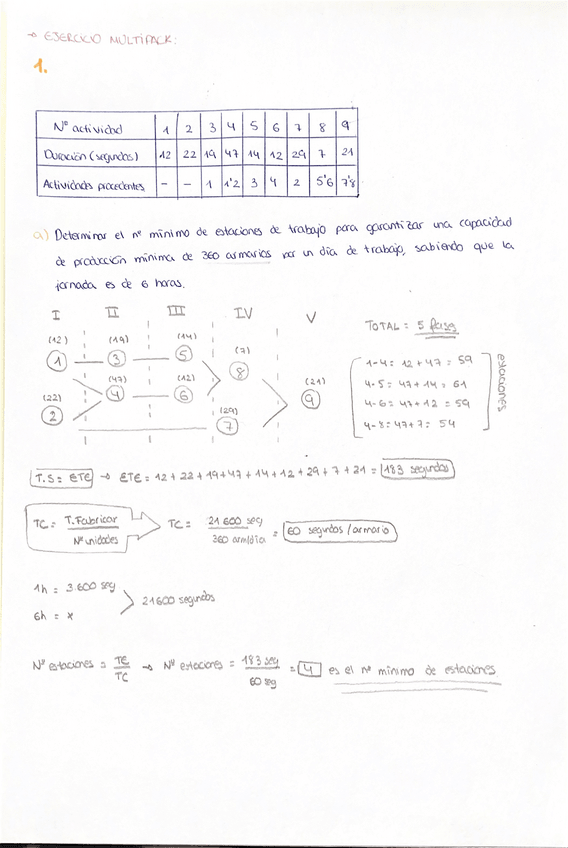 → EJERCICIO MULTIPACK:
1.
Nº actividad 1 2 3 4 5 6 7 8 9
Duración (segundos) 12 22 19 47 14 12 29 7 21
Actividades precedentes - - 1 1'2 3 4 2 5'6 7'8
a) Determinar el nº mínimo de estaciones de trabajo para garantizar una capacidad
de producción mínima de 360 armarios por un día de trabajo, sabiendo que la
jornada es de 6 horas.
I II III IV V
TOTAL = 5 fases
(12) (19) (14)
1 3 5
(7)
8
(47) (12)
4 6
(21)
9
(22)
2
(29)
7
1-4 = 12 + 47 = 59
4-5 = 47 + 14 = 61
4-6 = 47 + 12 = 59
4-8 = 47 + 7 = 54
estaciones
T.S = ETC → ETC = 12 + 22 + 19 + 47 + 14 + 12 + 29 + 7 + 21 = 183 segundos
TC = T.Fabricar / Nº unidades TC = 21600 seg / 360 arm/día = 60 segundos / armario
1h = 3.600 seg
6h = x
21600 segundos
Nº estaciones = TE / TC → Nº estaciones = 183 seg / 60 seg = 4 es el nº mínimo de estaciones